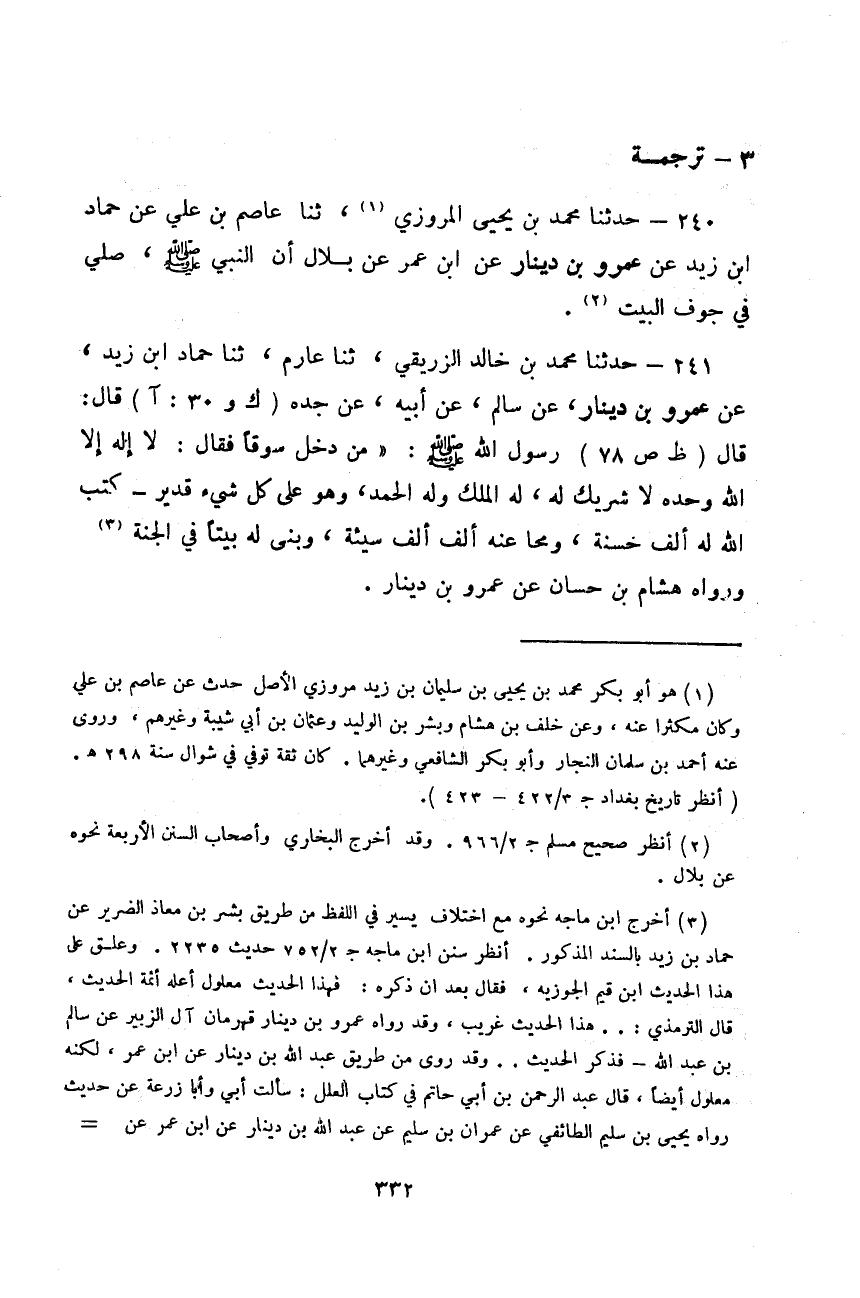 ٣ - ترجمـــة
٢٤٠ - حدثنا محمد بن يحيى المروزي (١) ، ثنا عاصم بن علي عن حماد
ابن زيد عن عمرو بن دينار عن ابن عمر عن بــلال أن النبي ﷺ ، صلي
في جوف البيت (٢) .
٢٤١ - حدثنا محمد بن خالد الزريقي ، ثنا عارم ، ثنا حماد ابن زيد ،
عن عمرو بن دينار، عن سالم ، عن أبيه ، عن جده ( ك و ٣٠ : آ ) قال:
قال ( ظ ص ٧٨ ) رسول الله ﷺ : « من دخل سوقاً فقال : لا إله إلا
الله وحده لا شريك له ، له الملك وله الحمد، وهو على كل شيء قدير - كتب
الله له ألف خسنة ، ومحا عنه ألف ألف سيئة ، وبنى له بيتاً في الجنة (٣)
ورواه هشام بن حسان عن عمرو بن دينار .
(١) هو أبو بكر محمد بن يحيى بن سليمان بن زيد مروزي الأصل حدث عن عاصم بن علي
وكان مكثرا عنه ، وعن خلف بن هشام وبشر بن الوليد وعثمان بن أبي شيبة وغيرهم ، وروى
عنه أحمد بن سلمان النجار وأبو بكر الشافعي وغيرهما . كان ثقة توفي في شوال سنة ٢٩٨ هـ .
( أنظر تاريخ بغداد جـ ٤٢٢/٣ - ٤٢٣ ).
(٢) أنظر صحيح مسلم جـ ٩٦٦/٢ . وقد أخرج البخاري وأصحاب السنن الأربعة نحوه
عن بلال .
(٣) أخرج ابن ماجه نحوه مع اختلاف يسير في اللفظ من طريق بشر بن معاذ الضرير عن
حماد بن زيد بالسند المذكور . أنظر سنن ابن ماجه جـ ٧٥٢/٢ حديث ٢٢٣٥ . وعلـق على
هذا الحديث ابن قيم الجوزيه ، فقال بعد ان ذكره : فهذا الحديث معلول أعله أئمة الحديث ،
قال الترمذي : . . هذا الحديث غريب ، وقد رواه عمرو بن دينار قهرمان آل الزبير عن سالم
بن عبد الله - فذكر الحديث . . وقد روى من طريق عبد الله بن دينار عن ابن عمر ، لكنه
معلول أيضاً ، قال عبد الرحمن بن أبي حاتم في كتاب العلل : سألت أبي وأبا زرعة عن حديث
رواه يحيى بن سليم الطائفي عن عمران بن سليم عن عبد الله بن دينار عن ابن عمر عن =
٣٣٢